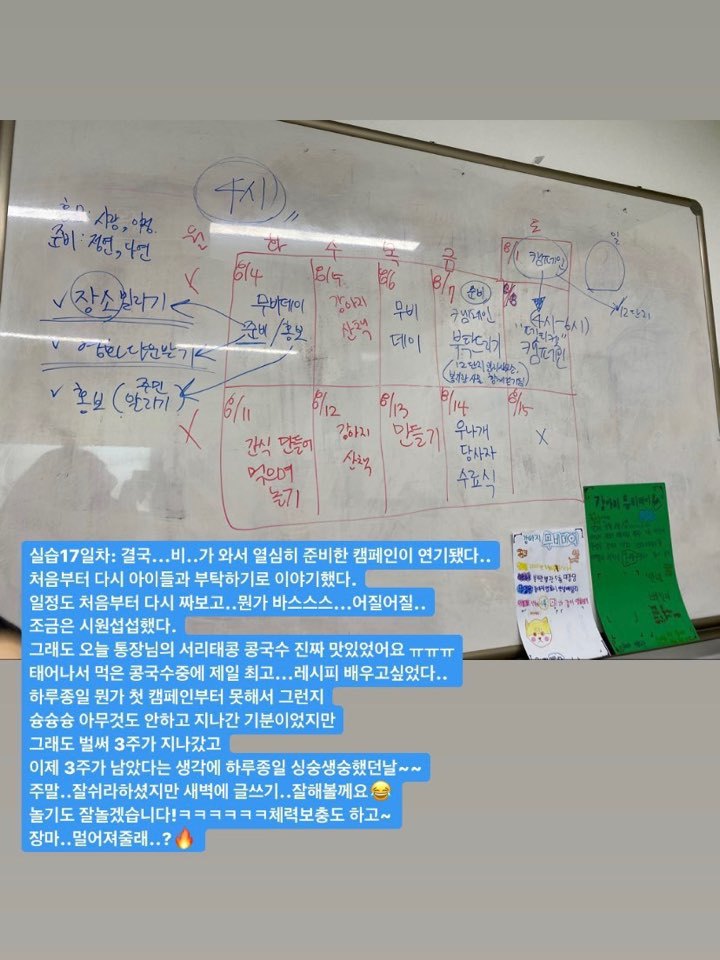 4시
준비: 정연, 나연
월 화 수 목 금 토 일
✓ 장소빌리기
✓ 홍보 (주민 알리기)
8/4
무비데이
준비/홍보
8/5
강아지
산책
8/6
무비
데이
8/7
준비
캠페인
부탁드리기
8/1
캠페인
12단지
8/8
(4시-6시)
캠페인
8/11
간식 만들어
먹으며
놀기
8/12
강아지
산책
8/13
만들기
8/14
우나개
당사자
수료식
8/15
X
무비데이
실습17일차: 결국...비..가 와서 열심히 준비한 캠페인이 연기됐다..
처음부터 다시 아이들과 부탁하기로 이야기했다.
일정도 처음부터 다시 짜보고..뭔가 바스스스...어질어질..
조금은 시원섭섭했다.
그래도 오늘 통장님의 서리태콩 콩국수 진짜 맛있었어요 ㅠㅠㅠ
태어나서 먹은 콩국수중에 제일 최고...레시피 배우고싶었다..
하루종일 뭔가 첫 캠페인부터 못해서 그런지
슝슝슝 아무것도 안하고 지나간 기분이었지만
그래도 벌써 3주가 지나갔고
이제 3주가 남았다는 생각에 하루종일 싱숭생숭했던날~~
주말..잘쉬라하셨지만 새벽에 글쓰기..잘해볼께요😂
놀기도 잘놀겠습니다!ㅋㅋㅋㅋㅋㅋ체력보충도 하고~
장마..멀어져줄래..?🔥